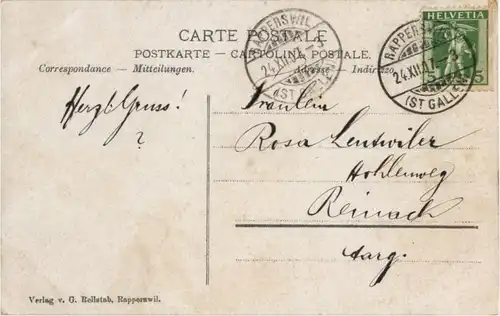 CARTE POSTALE
POSTKARTE — CARTOLINA POSTALE.
Correspondance — Mitteilungen.
Adresse — Indirizzo
RAPPERSWIL
24.XII.07
(ST GALLEN)
RAPPERS
24.XII.07
(ST GALLEN)
HELVETIA
5
Herzl. Gruss!
?
Fräulein
Rosa Lentwiler
Hohlenweg
Reinach
Aarg.
Verlag v. G. Rellstab, Rapperswil.